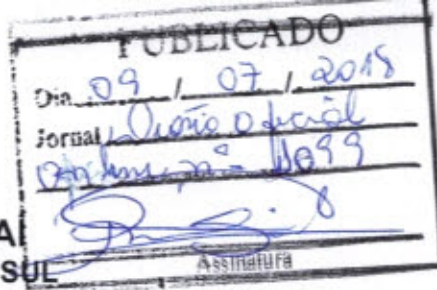 PUBLICADO
Dia 09 / 07 / 2018
Jornal Diário Oficial
1099
Assinatura
SUL